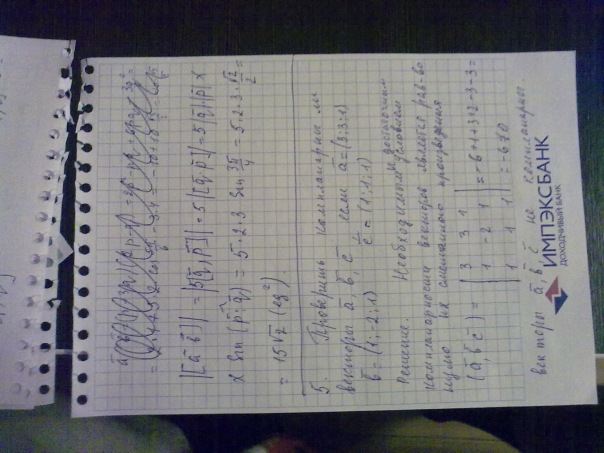 |[a̅ b̅]| = |5[q̅, p̅]| = 5|[q̅, p̅]| = 5|q̅||p̅| x
x sin (p̅; q̅) = 5·2·3 sin 3π/4 = 5·2·3·√2/2 =
= 15√2 (ед²)
5. Проверить компланарны ли
векторы a̅, b̅, c̅ если a̅ = (3; 3; 1)
b̅ = (1; -2; 1) c̅ = (1; 1; 1)
Решение. Необходимым и достаточным условием
компланарности векторов является рав-во
нулю их смешанного произведения
(a̅, b̅ c̅) = | 3 3 1 |
| 1 -2 1 | = -6+1+3+2-3-3=
| 1 1 1 | = -6≠0
векторы a̅, b̅, c̅ не компланарны.
ИМПЭКСБАНК
ДОХОДЧИВЫЙ БАНК